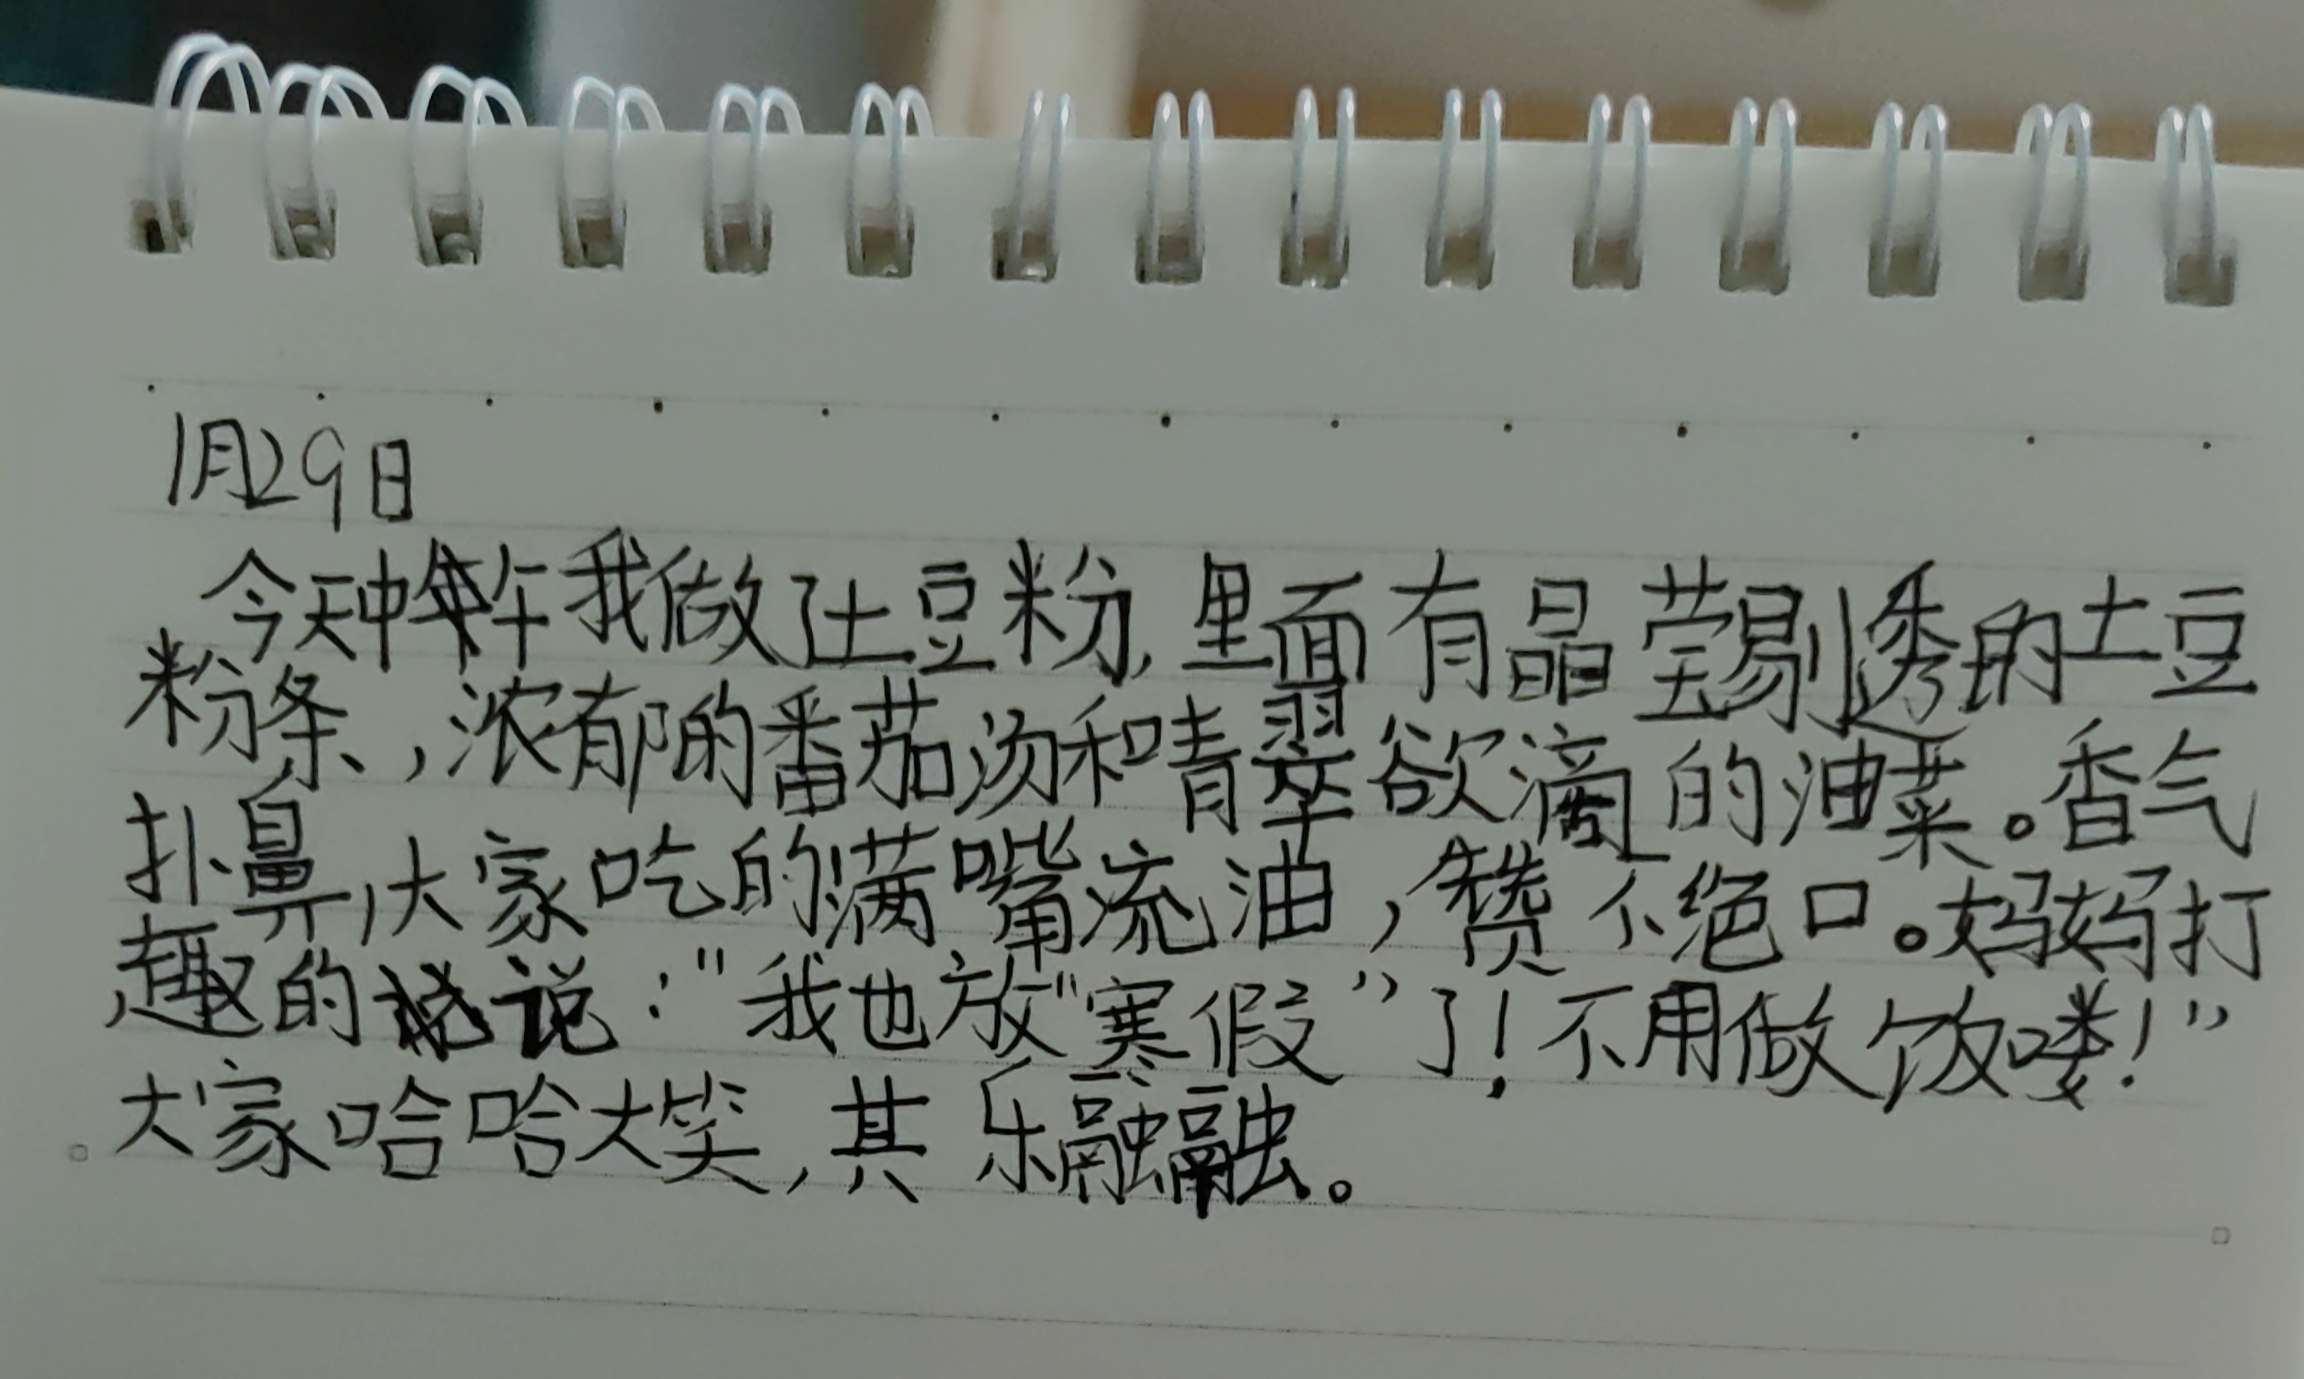 1月29日
今天中午我做了土豆粉,里面有晶莹剔透的土豆
粉条,浓郁的番茄汤和青翠欲滴的油菜。香气
扑鼻,大家吃的满嘴流油,赞不绝口。妈妈打
趣的说:"我也放"寒假"了!不用做饭喽!"
大家哈哈大笑,其乐融融。